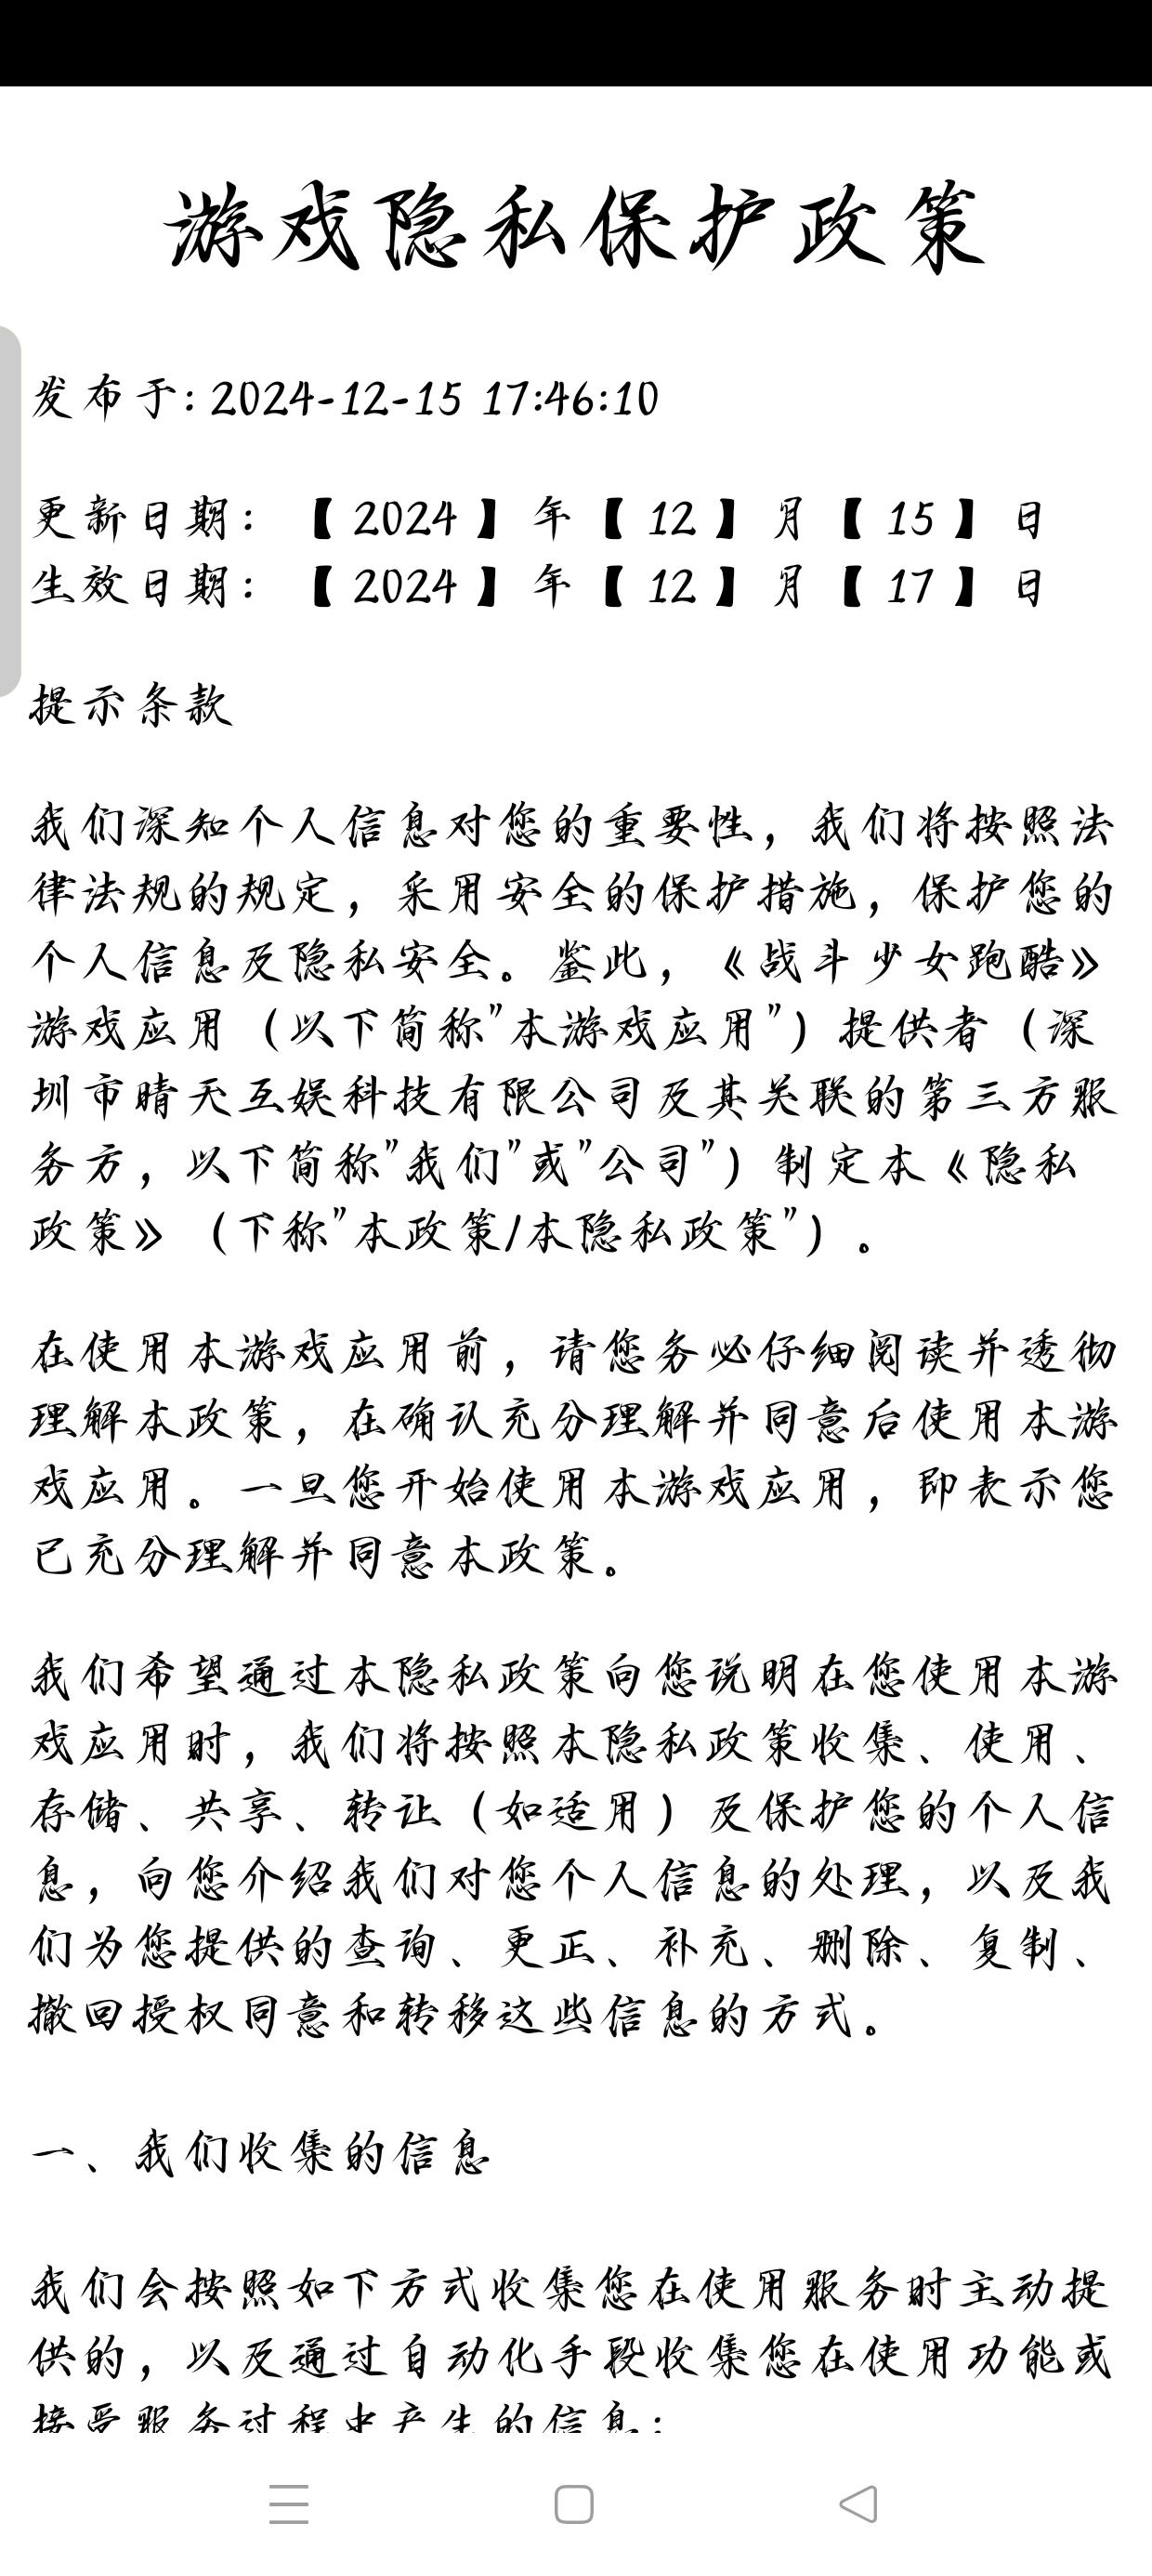 游戏隐私保护政策
发布于: 2024-12-15 17:46:10
更新日期：【 2024 】年【 12 】月【 15 】日
生效日期：【 2024 】年【 12 】月【 17 】日
提示条款
我们深知个人信息对您的重要性，我们将按照法
律法规的规定，采用安全的保护措施，保护您的
个人信息及隐私安全。鉴此，《战斗少女跑酷》
游戏应用（以下简称"本游戏应用"）提供者（深
圳市晴天互娱科技有限公司及其关联的第三方服
务方，以下简称"我们"或"公司"）制定本《隐私
政策》（下称"本政策/本隐私政策"）。
在使用本游戏应用前，请您务必仔细阅读并透彻
理解本政策，在确认充分理解并同意后使用本游
戏应用。一旦您开始使用本游戏应用，即表示您
已充分理解并同意本政策。
我们希望通过本隐私政策向您说明在您使用本游
戏应用时，我们将按照本隐私政策收集、使用、
存储、共享、转让（如适用）及保护您的个人信
息，向您介绍我们对您个人信息的处理，以及我
们为您提供的查询、更正、补充、删除、复制、
撤回授权同意和转移这些信息的方式。
一、我们收集的信息
我们会按照如下方式收集您在使用服务时主动提
供的，以及通过自动化手段收集您在使用功能或
接受服务过程中产生的信息：